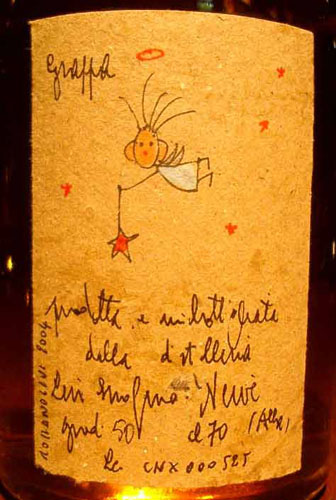 Grappa
prodotta e imbottigliata
dalla distilleria
Levi Serafino: Neive
grad 50 cl 70 (Alba)
Lc CNX000525
ROMANO LEVI 2004